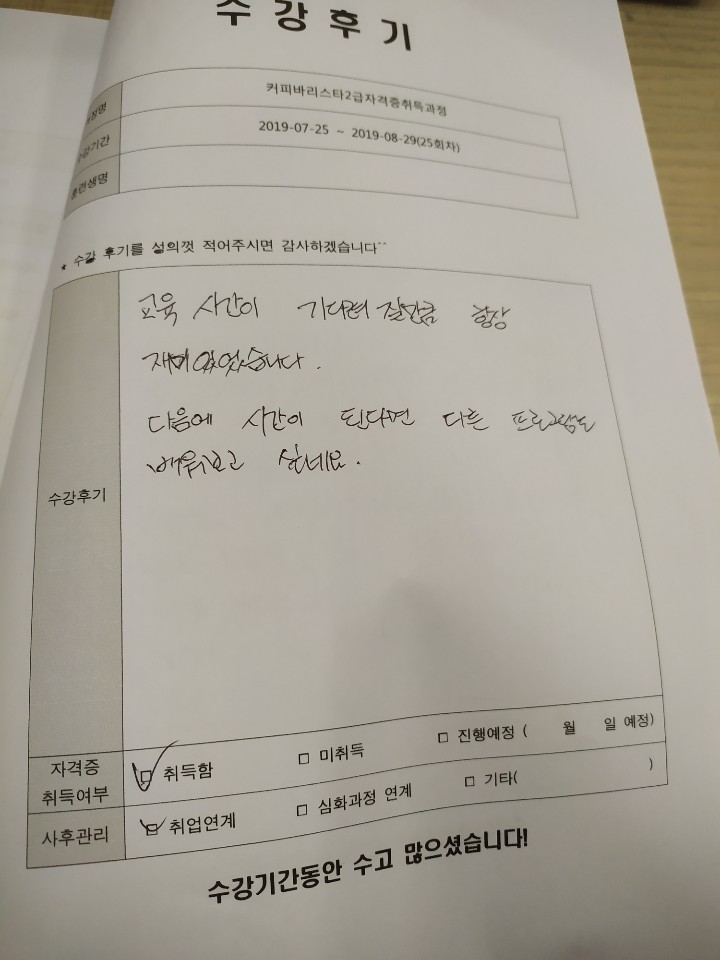 수 강 후 기
과정명
커피바리스타2급자격증취득과정
수강기간
2019-07-25 ~ 2019-08-29(25회차)
훈련생명
* 수강 후기를 성의껏 적어주시면 감사하겠습니다^^
수강후기
교육 시간이 기다려 질만큼 항상
재미있었습니다.
다음에 시간이 된다면 다른 프로그램도
배워보고 싶네요.
자격증
취득여부
□ 취득함 □ 미취득 □ 진행예정 ( 월 일 예정)
사후관리
□ 취업연계 □ 심화과정 연계 □ 기타( )
수강기간동안 수고 많으셨습니다!